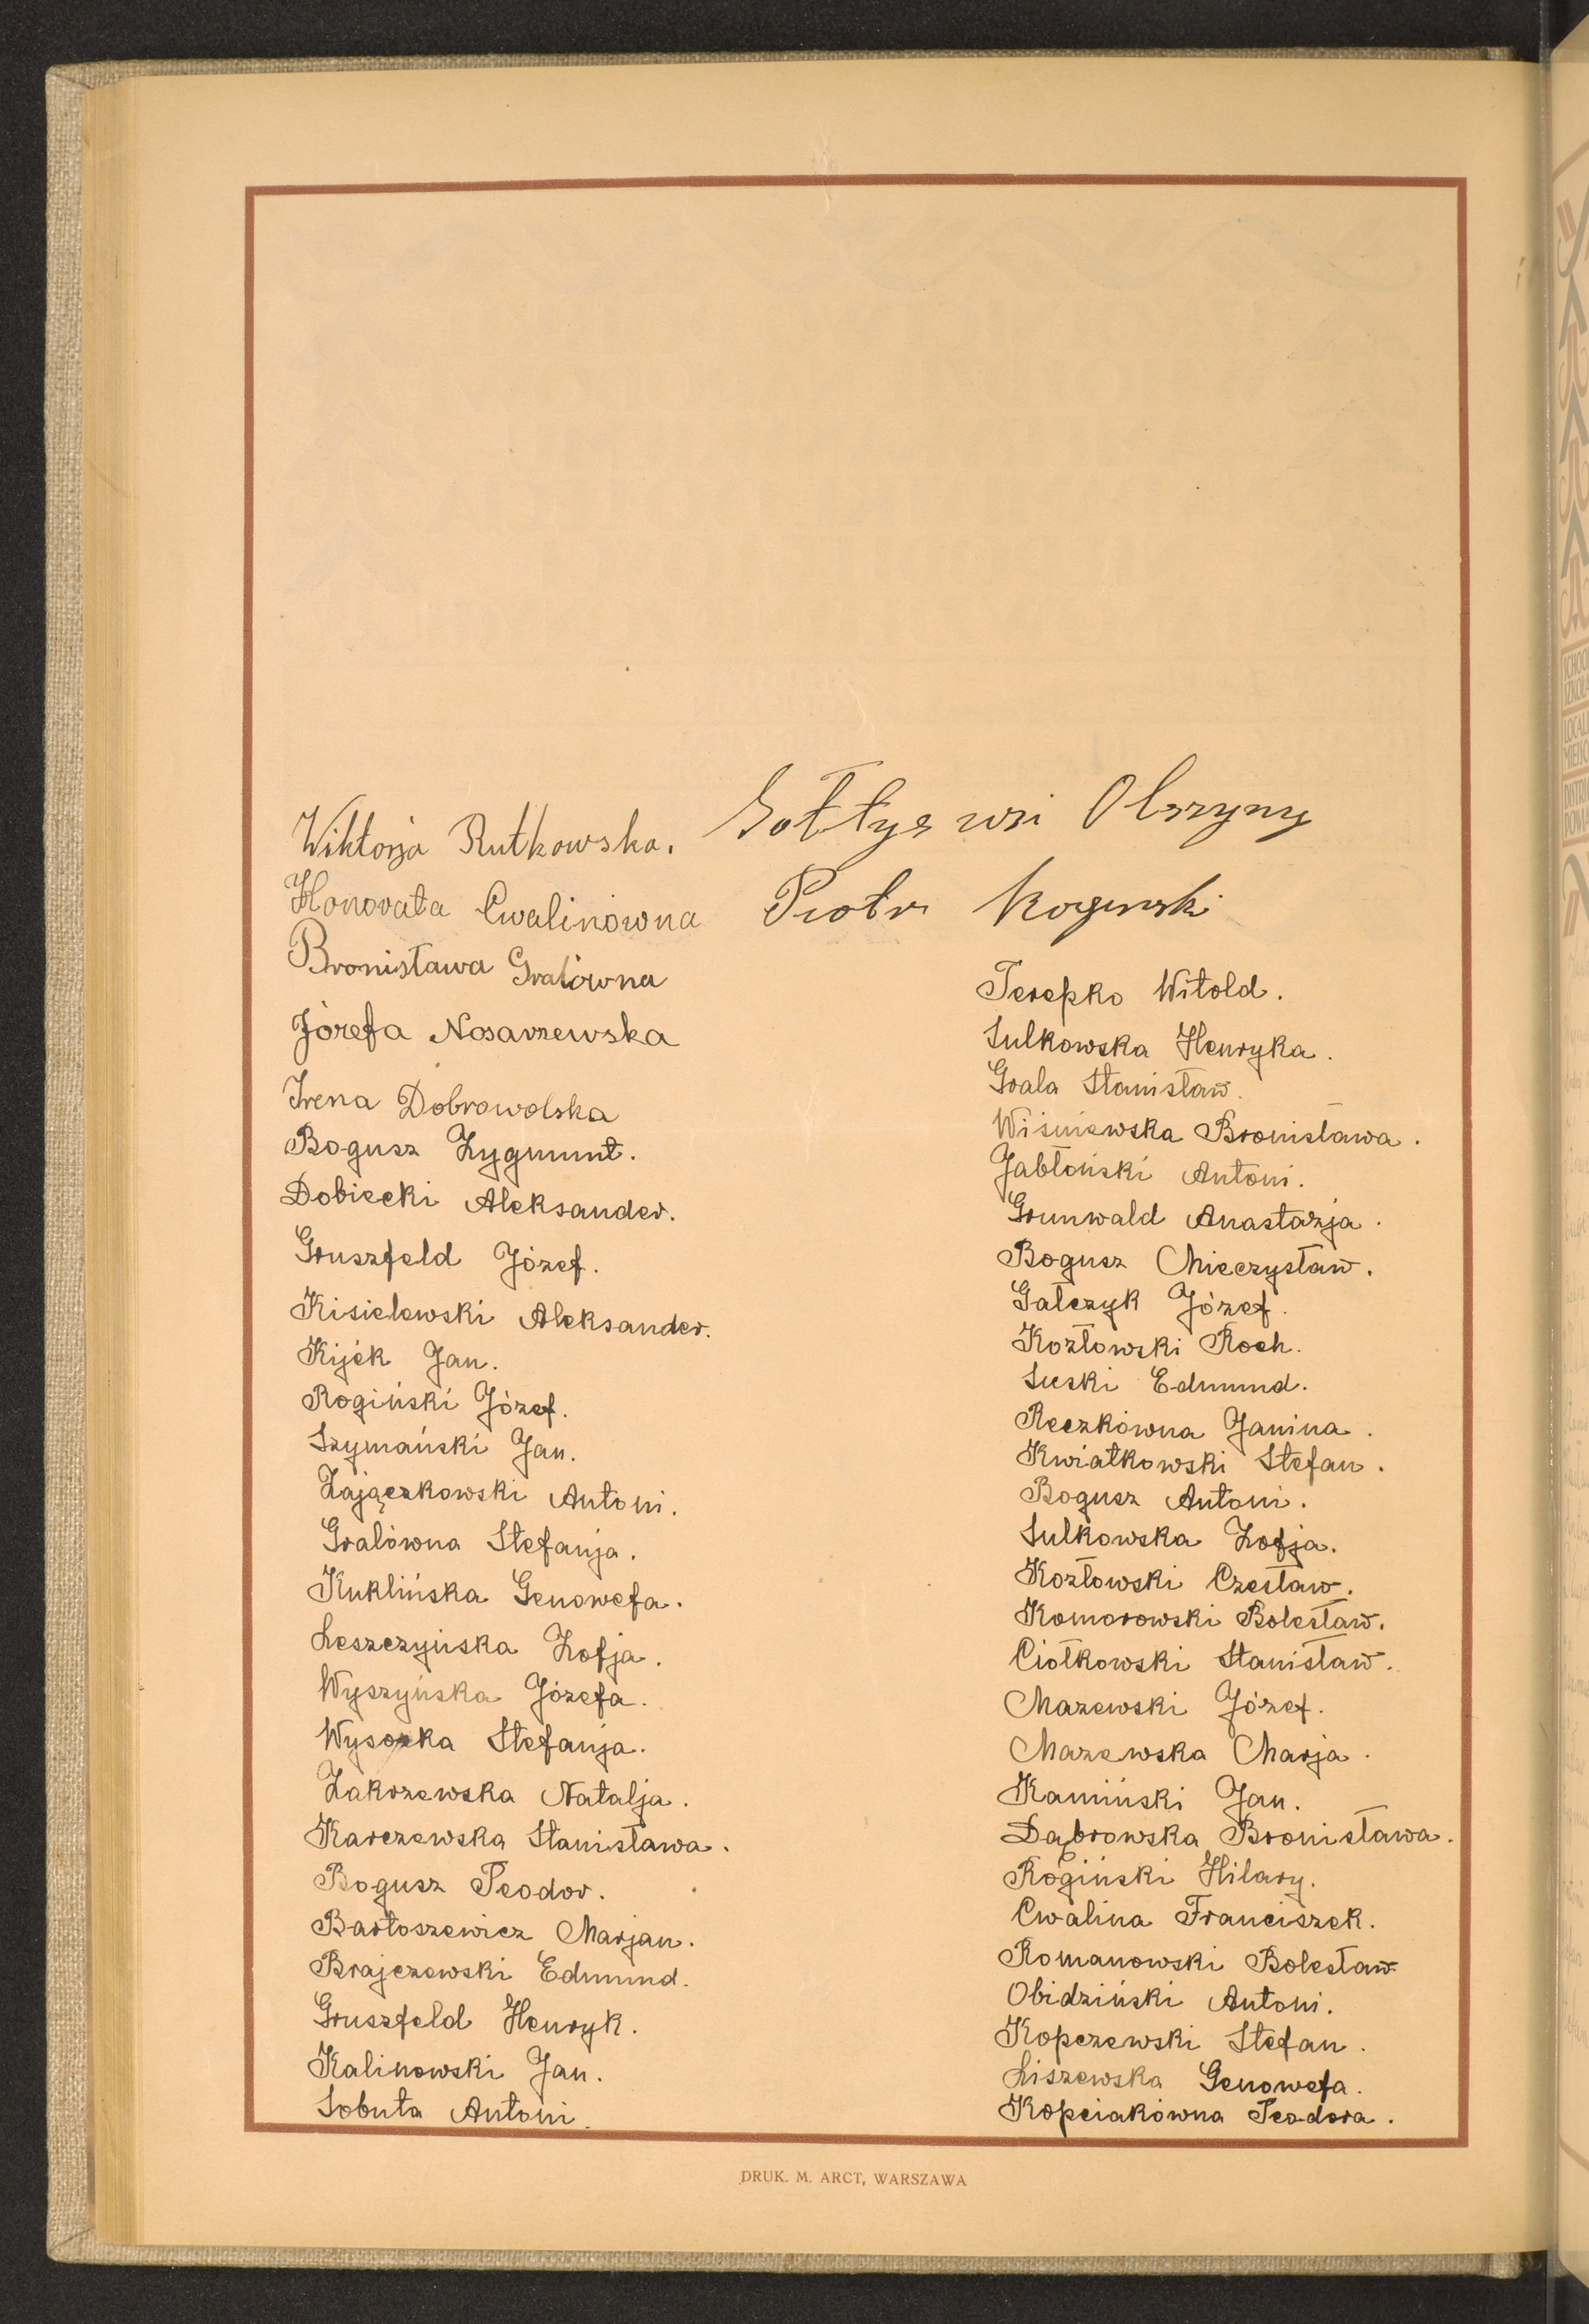 Wiktorja Rutkowska.
Honorata Cwalinówna
Bronisława Gralówna
Józefa Nosarzewska
Irena Dobrowolska
Bogusz Zygmunt.
Dobiecki Aleksander.
Gruszfeld Józef.
Kisielewski Aleksander.
Kijek Jan.
Rogiński Józef.
Szymański Jan.
Zajączkowski Antoni.
Gralówna Stefanja.
Kuklińska Genowefa.
Leszczyńska Zofja.
Wyszyńska Józefa.
Wysocka Stefanja.
Zakrzewska Natalja.
Karczewska Stanisława.
Bogusz Teodor.
Bartoszewicz Marjan.
Brajczewski Edmund.
Gruszfeld Henryk.
Kalinowski Jan.
Sobuta Antoni.
Sołtys wsi Olszyny
Piotr Rogiński
Terepko Witold.
Sulkowska Henryka.
Grala Stanisław.
Wiśniewska Bronisława.
Jabłoński Antoni.
Grunwald Anastazja.
Bogusz Mieczysław.
Gałczyk Józef.
Kozłowski Roch.
Suski Edmund.
Reczkówna Janina.
Kwiatkowski Stefan.
Bogusz Antoni.
Sulkowska Zofja.
Kozłowski Czesław.
Komorowski Bolesław.
Ciołkowski Stanisław.
Mazewski Józef.
Mazewska Marja.
Kamiński Jan.
Dąbrowska Bronisława.
Rogiński Hilary.
Cwalina Franciszek.
Romanowski Bolesław
Obidziński Antoni.
Kopczewski Stefan.
Liszewska Genowefa.
Kopciakówna Teodora.
DRUK. M. ARCT, WARSZAWA